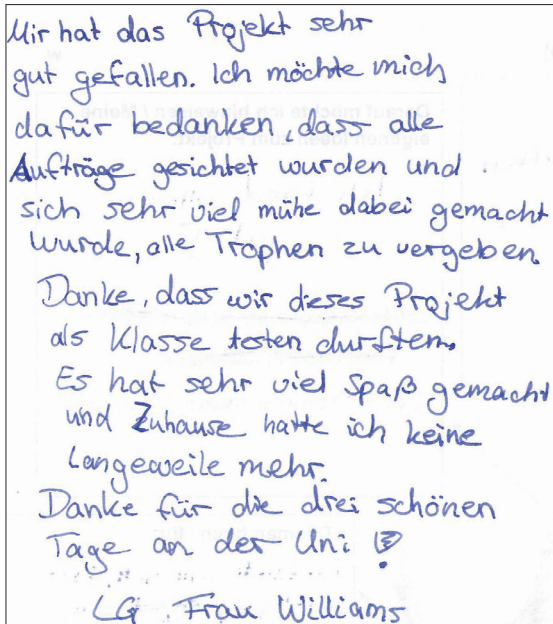 Mir hat das Projekt sehr
gut gefallen. Ich möchte mich
dafür bedanken, dass alle
Aufträge gesichtet wurden und
sich sehr viel mühe dabei gemacht
wurde, alle Trophen zu vergeben.
Danke, dass wir dieses Projekt
als Klasse testen durften.
Es hat sehr viel Spaß gemacht
und Zuhause hatte ich keine
Langeweile mehr.
Danke für die drei schönen
Tage an der Uni !
LG Frau Williams